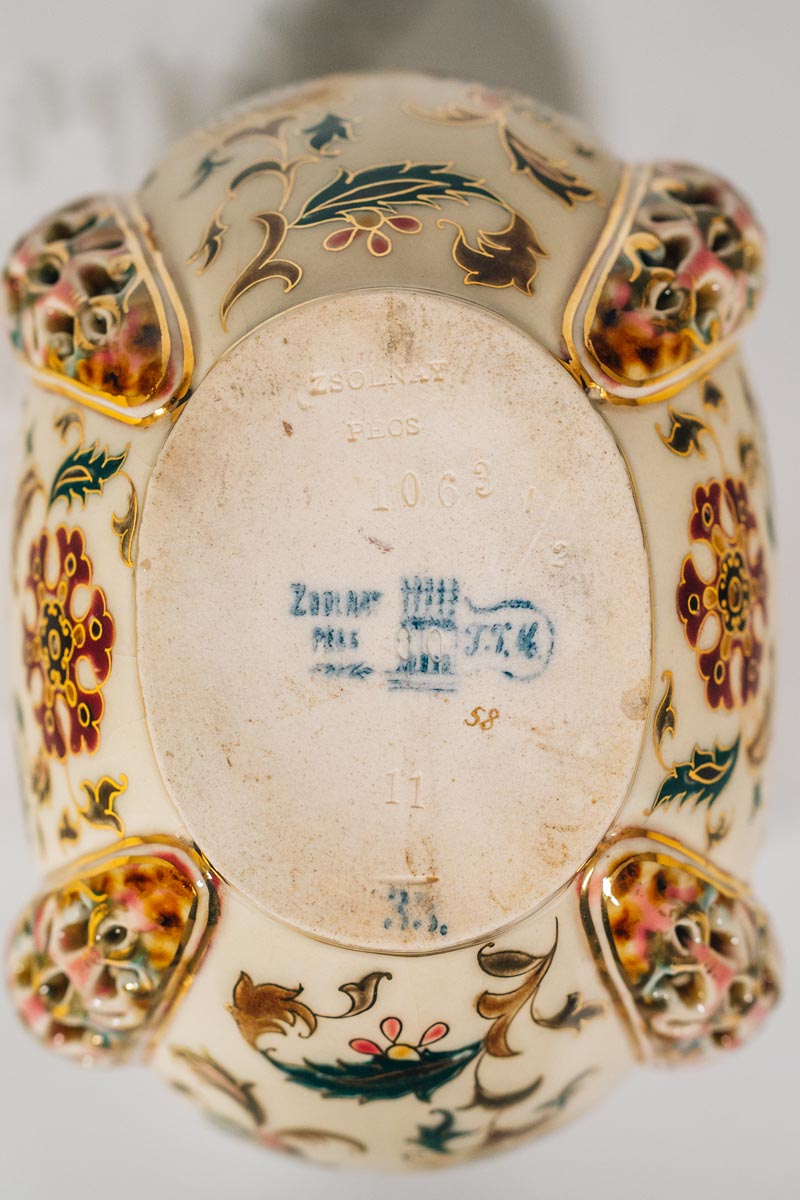 ZSOLNAY
PECS
1063
2
ZSOLNAY
PÉCS
T.J.M.
58
11
33.